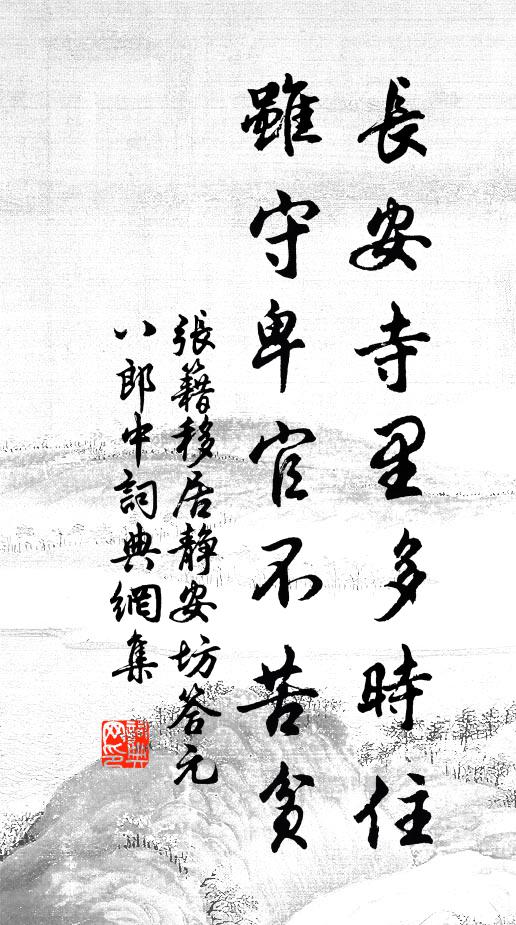 長安寺里多時住
雖守卑官不苦貧
張籍移居靜安坊答元
八郎中詞典網集